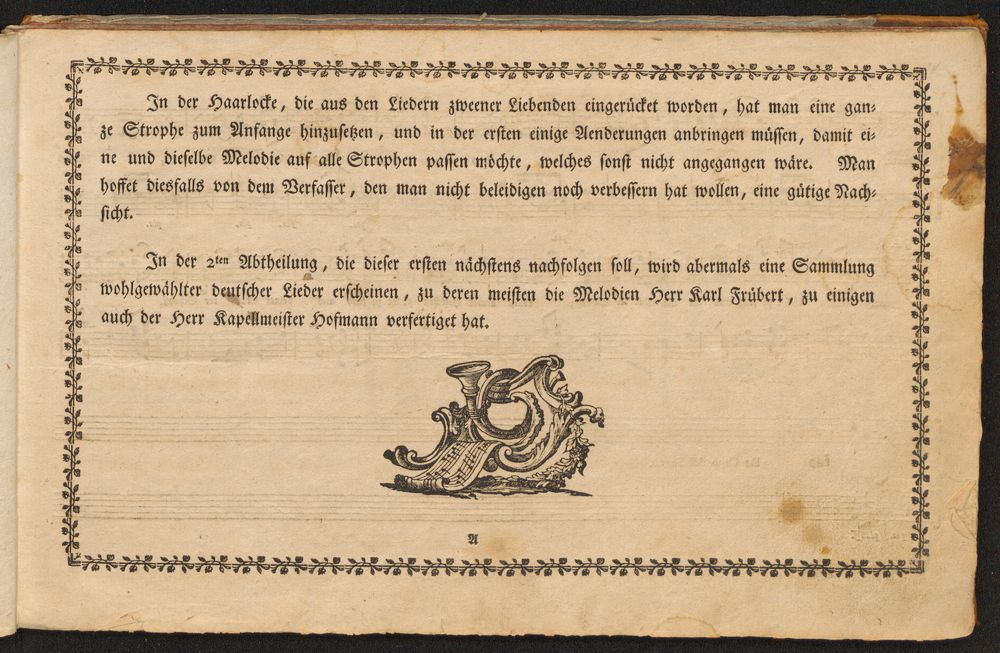 In der Haarlocke, die aus den Liedern zweener Liebenden eingerücket worden, hat man eine gan-
ze Strophe zum Anfange hinzusetzen, und in der ersten einige Aenderungen anbringen müssen, damit ei-
ne und dieselbe Melodie auf alle Strophen passen möchte, welches sonst nicht angegangen wäre. Man
hoffet diesfalls von dem Verfasser, den man nicht beleidigen noch verbessern hat wollen, eine gütige Nach-
sicht.
In der 2ten Abtheilung, die dieser ersten nächstens nachfolgen soll, wird abermals eine Sammlung
wohlgewählter deutscher Lieder erscheinen, zu deren meisten die Melodien Herr Karl Frübert, zu einigen
auch der Herr Kapellmeister Hofmann verfertiget hat.
A